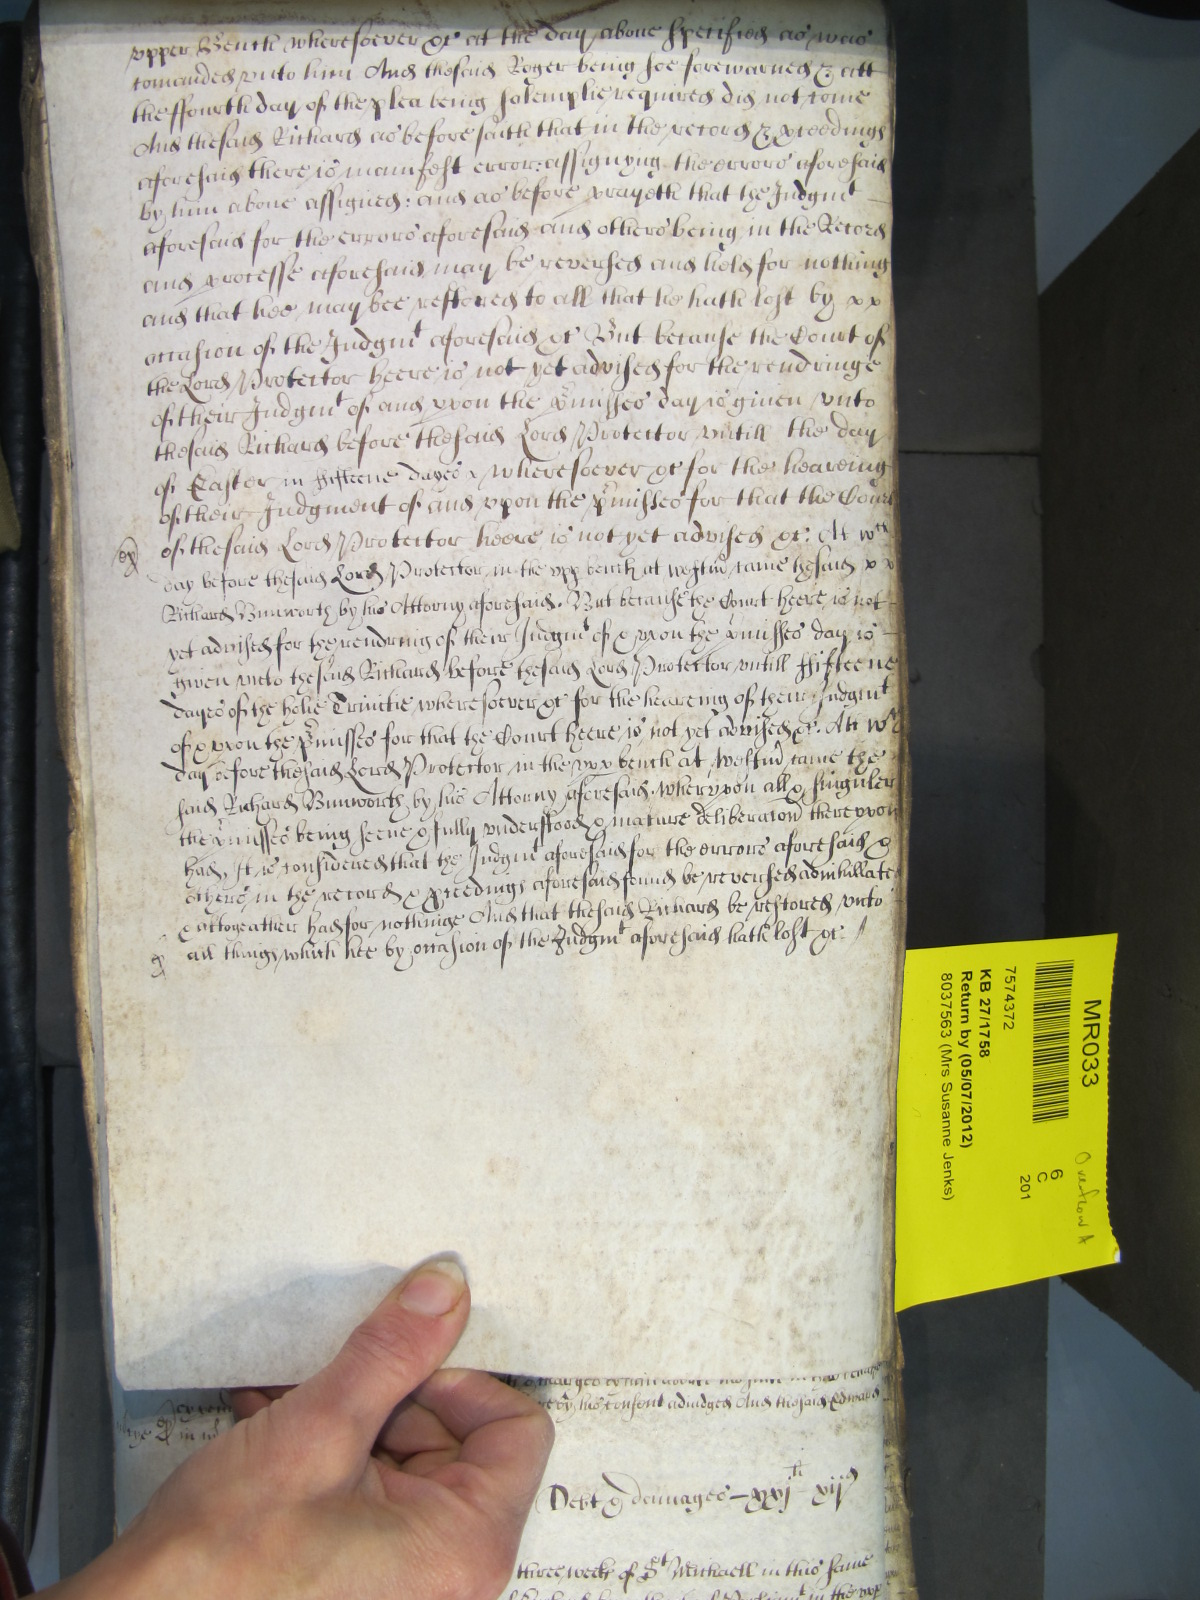 upper Bench wheresoever &c at the day above specified as was
comanded unto him And the said Roger being soe forewarned & att
the ffourth day of the plea being solemplie required did not come
And the said Richard as before saith that in the record & pceedings
aforesaid there is manifest error: assignyng the errors aforesaid
by him above assigned: and as before prayeth that the Judgmt
aforesaid for the errors aforesaid and others being in the Record
and processe aforesaid may be reversed and held for nothing
and that hee may bee restored to all that he hath lost by x x
occasion of the Judgmt aforesaid &c But because the Court of
the Lord Protector heere is not yet advised for the rendringe
of their Judgmt of and upon the pmisses day is given unto
the said Richard before the said Lord Protector untill the day
of Easter in fifteene dayes x wheresoever &c for the heareing
of their Judgment of and upon the pmisses for that the Court
of the said Lord Protector heere is not yet advised &c: At wch
day before the said Lord Protector in the upp bench at Westmr came the said x x
Richard Bunworth by his Attorny aforesaid. But because the Court heere is not
yet advised for the rendring of their Judgmt of & upon the pmisses day is
given unto the said Richard before the said Lord Protector untill ffifteene
dayes of the holie Trinitie wheresoever &c for the heareing of their Judgmt
of & upon the pmisses for that the Court heere is not yet advised &c. Att wch
day before the said Lord Protector in the upp bench at Westmr came the
said Richard Bunworth by his Attorny aforesaid. wherupon all & singuler
the pmisses being seene & fully understood & mature deliberacon thereupon
had, It is considered that the Judgmt aforesaid for the errors aforesaid &
others in the record & pceedings aforesaid found be reversed adnihillated
& altogeather had for nothinge And that the said Richard be restored unto
all things which hee by occasion of the Judgmt aforesaid hath lost &c //
by his consent adiudged And the said Edward
Debt & damages – xxjli xijd
three weeks of St Michaell in this same
MR033
7574372
KB 27/1758
Return by (05/07/2012)
8037563 (Mrs Susanne Jenks)
6
C
201
Overflow A